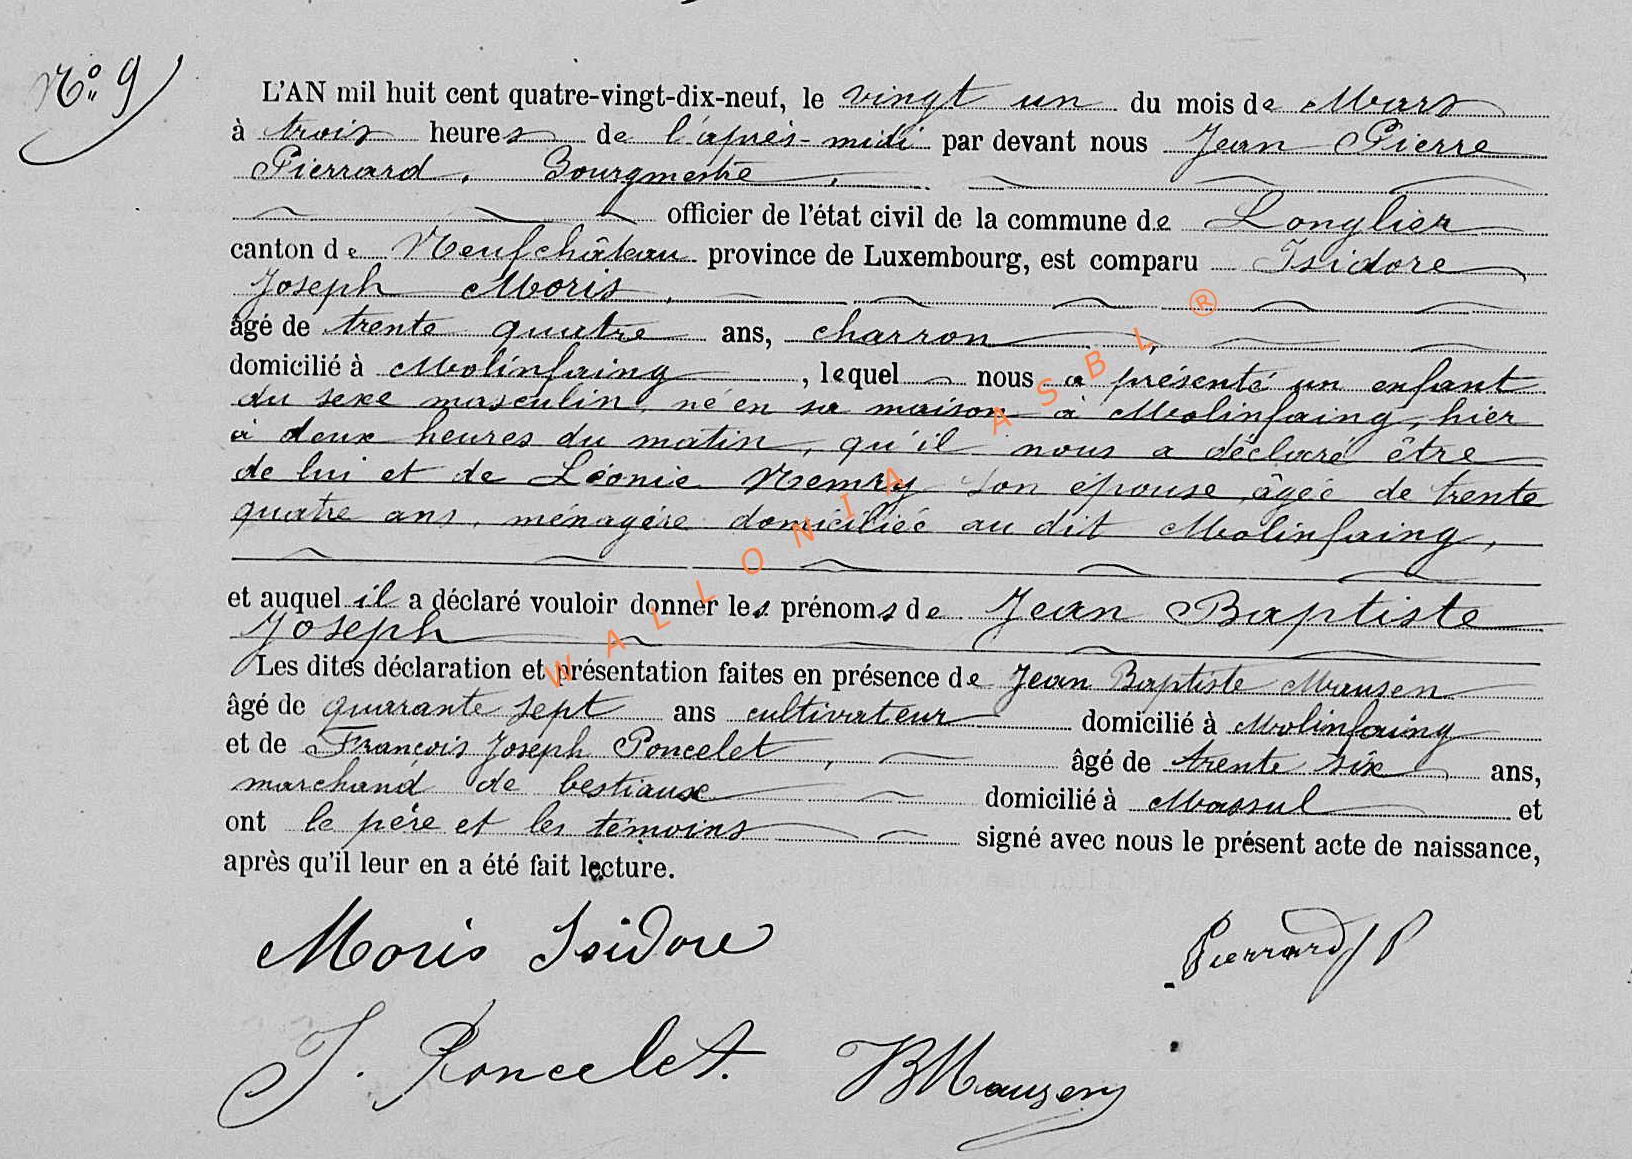 N° 9
L'AN mil huit cent quatre-vingt-dix-neuf, le vingt un du mois de Mars
à trois heures de l'après-midi par devant nous Jean Pierre
Pierrard, Bourgmestre,
officier de l'état civil de la commune de Longlier
canton de Neufchâteau province de Luxembourg, est comparu Isidore
Joseph Moris,
âgé de trente quatre ans, charron,
domicilié à Molinfaing, lequel nous a présenté un enfant
du sexe masculin, né en sa maison à Molinfaing, hier
à deux heures du matin, qu'il nous a déclaré être
de lui et de Léonie Nemry son épouse, âgée de trente
quatre ans, ménagère domiciliée au dit Molinfaing,
et auquel il a déclaré vouloir donner les prénoms de Jean Baptiste
Joseph
Les dites déclaration et présentation faites en présence de Jean Baptiste Mausen
âgé de quarante sept ans cultivateur domicilié à Molinfaing
et de François Joseph Poncelet, âgé de trente six ans,
marchand de bestiaux domicilié à Massul et
ont le père et les témoins signé avec nous le présent acte de naissance,
après qu'il leur en a été fait lecture.
Moris Isidore
Pierrard J P
J. Poncelet.
JB Mausen
WALLONIA ASBL ®